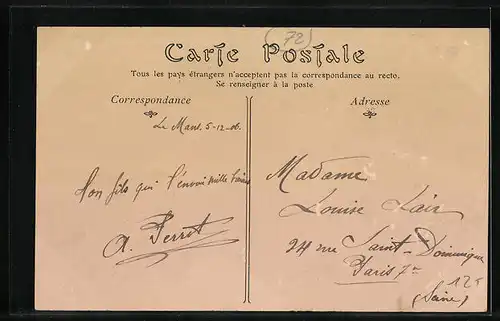 (72)
Carte Postale
Tous les pays étrangers n'acceptent pas la correspondance au recto.
Se renseigner à la poste
Correspondance
Adresse
Le Mans, 5-12-06.
Mon fils qui t'envoie mille
A. Perret
Madame
Louise
24 rue Saint-Dominique
Paris 7e
(Seine)